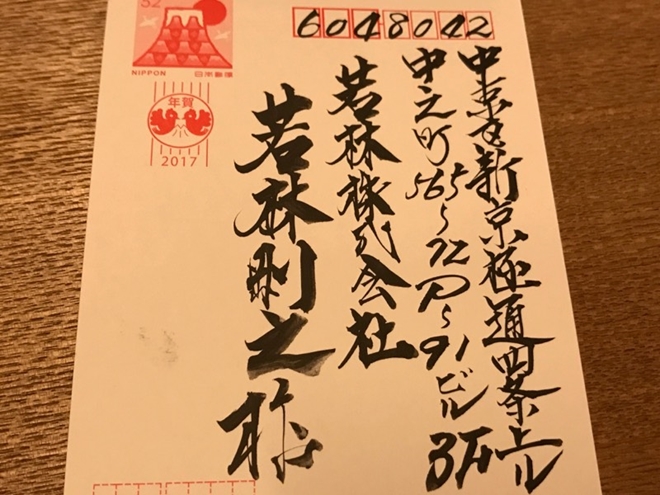 52
NIPPON 日本郵便
年賀
2017
6048042
中京区新京極通四条上ル
中之町565〜72P〜91ビル 3F
若林株式会社
若林剛之様